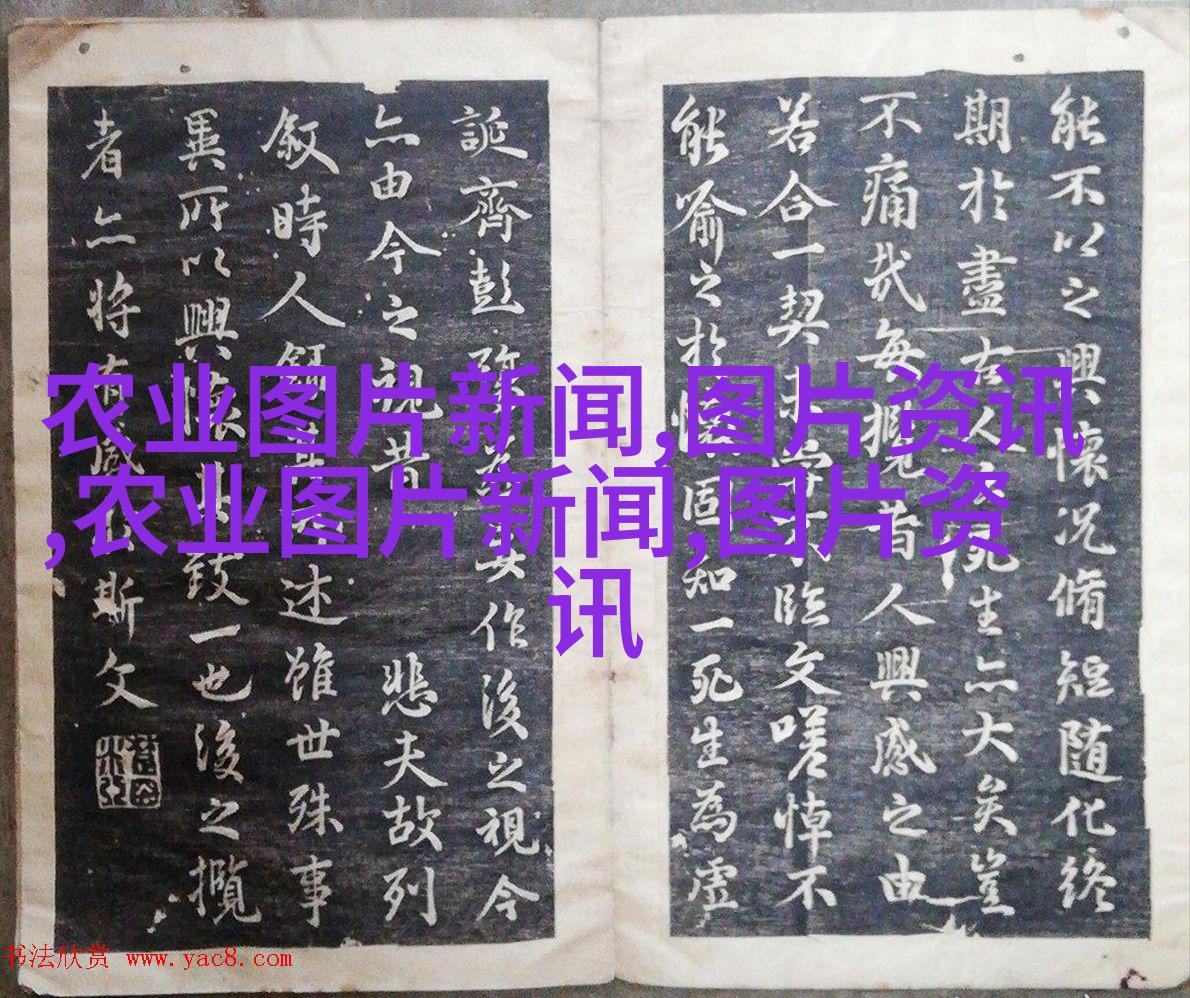 能不以之興懷況脩短随化終
期於盡古人死生亦大矣豈
不痛哉每攬昔人興感之由
若合一契未嘗不臨文嗟悼不
能喻之於懷固知一死生為虛
誕齊彭殤為妄作後之視今
亦由今之視昔 悲夫故列
叙時人錄其述雖世殊事
異所以興懷其致一也後之攬
者亦將有感斯文
农业图片新闻,图片资讯
,农业图片新闻,图片资
讯
书法欣赏 www.yac8.com